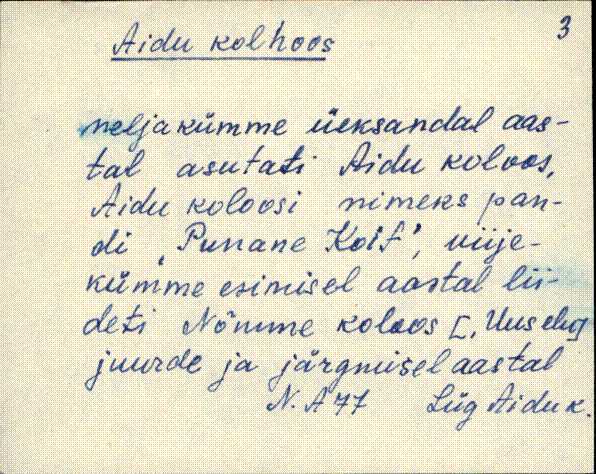 3
Aidu kolhoos
neljakümme üeksandal aas-
tal asutati Aidu koloos,
Aidu koloosi nimeks pan-
di ‚Punane Koit', viije-
kümme esimisel aastal lii-
deti Nõmme koloos [‚Uus elu]
juurde ja järgmisel aastal
N. A 77 Lüg Aidu k.